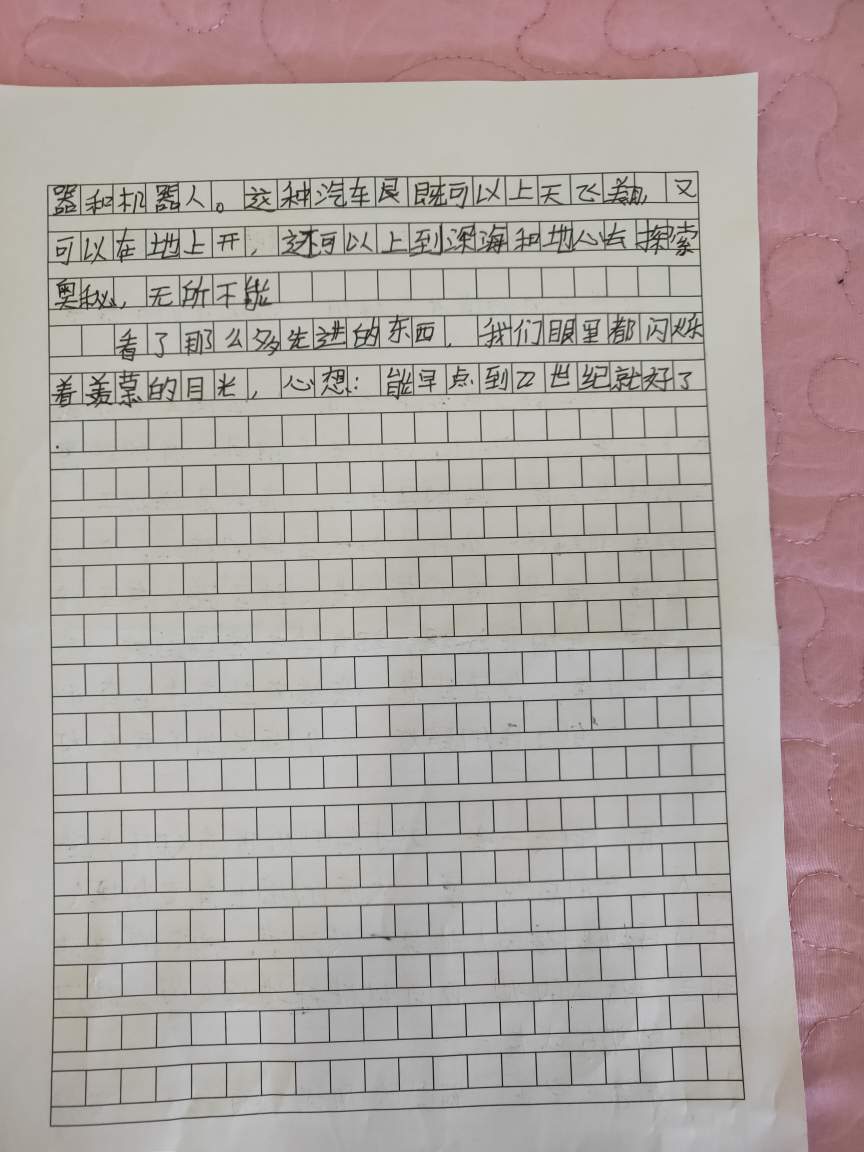 器和机器人。这种汽车既可以上天飞翔，又
可以在地上开，还可以上到深海和地心去探索
奥秘，无所不能
看了那么多先进的东西，我们眼里都闪烁
着羡慕的目光，心想：能早点到22世纪就好了
.